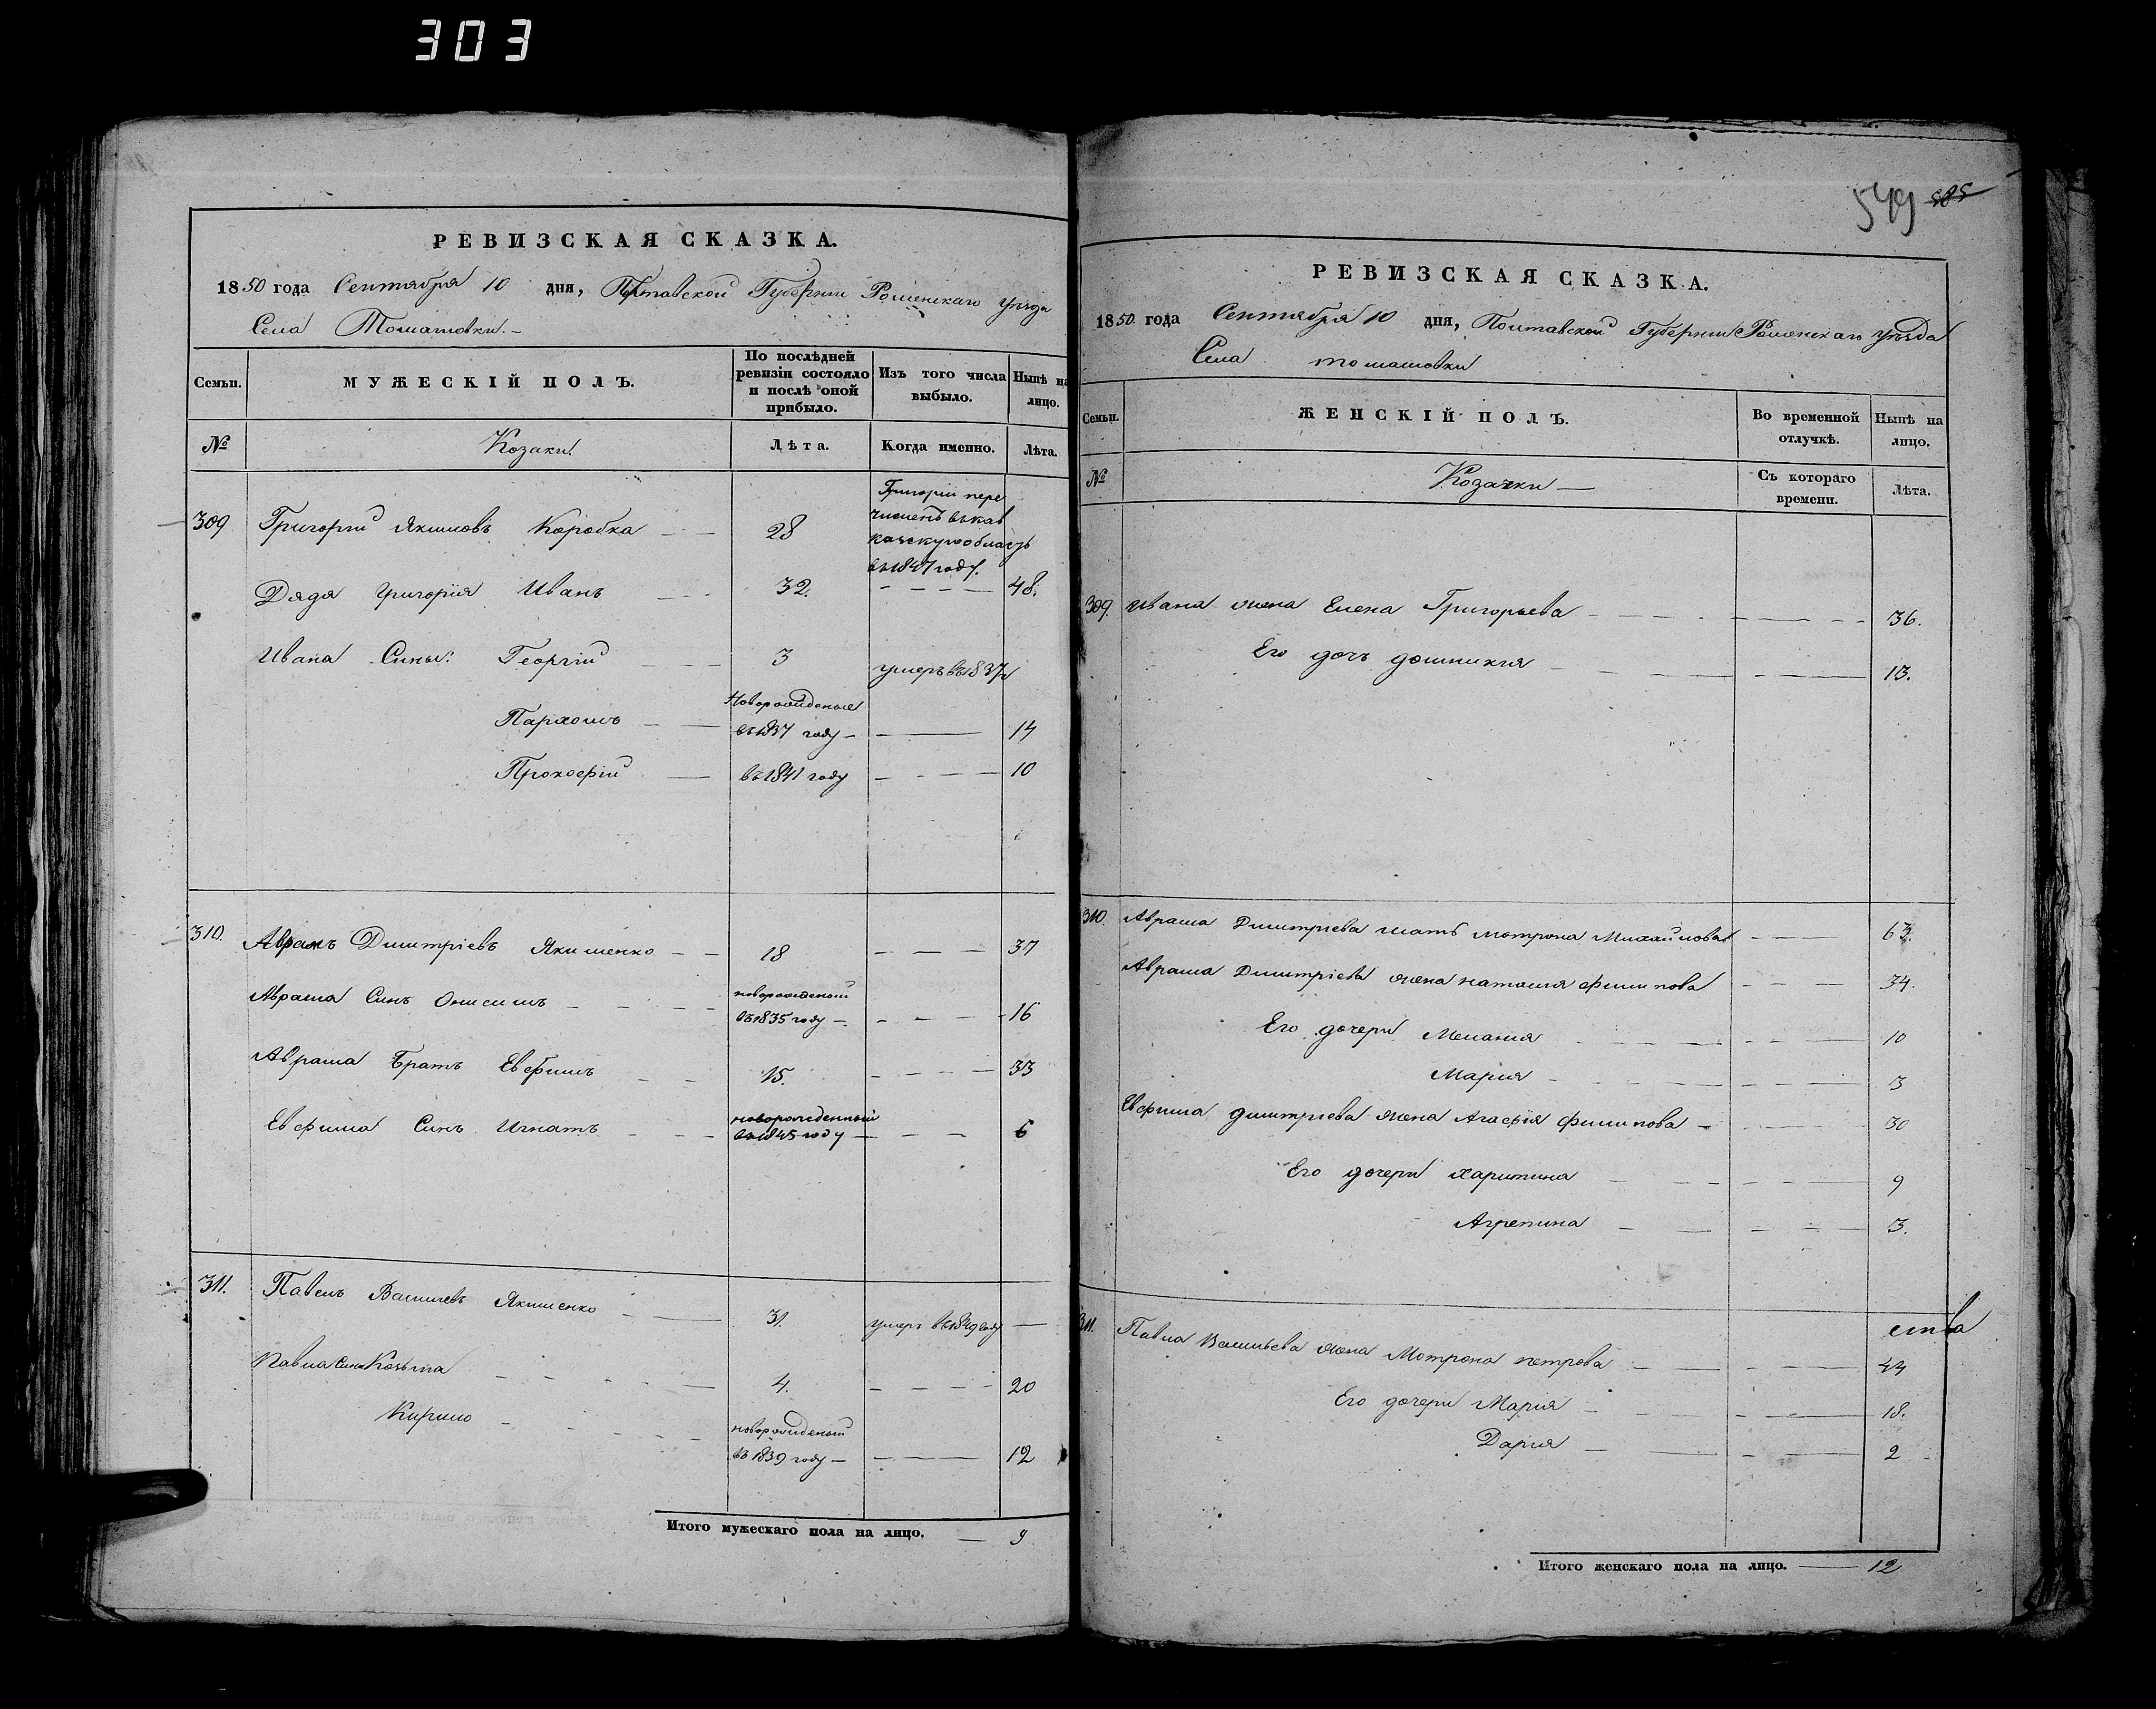 303
РЕВИЗСКАЯ СКАЗКА.
1850 года Сентября 10 дня, Полтавской Губернии Роменскаго уезда
Села Томашовки.-
Семьи. МУЖЕСКІЙ ПОЛЪ. По послѣдней ревизіи состояло и послѣ оной прибыло. Изъ того числа выбыло. Нынѣ на лицо.
№ Козаки Лѣта. Когда именно. Лѣта.
309 Григорий Якимовъ Коробка 28 Григорій перечисленъ въ кавказскую область въ 1847 году.
Дядя Григория Иванъ 32. 48.
Ивана Сины: Георгій 3 умеръ въ 1837
Пархомъ Новорожденые въ 1837 году 14
Прокофій въ 1841 году 10
310. Аврамъ Дмитріевъ Якименко 18 37
Аврама Синъ Онисимъ новорожденый въ 1835 году 16
Аврама Братъ Евфимъ 15. 33
Евфима Синъ Игнатъ новорожденный въ 1845 году 6
311. Павелъ Василиевъ Якименко 31. умеръ въ 1849 году
Павла Сини Козьма 4. 20
Кирило новорожденый въ 1839 году 12
Итого мужескаго пола на лицо. 9
549 505
РЕВИЗСКАЯ СКАЗКА.
1850 года Сентября 10 дня, Полтавской Губернии Роменскаго уѣзда
Села томашовки
Семьи. ЖЕНСКІЙ ПОЛЪ. Во временной отлучкѣ. Нынѣ на лицо.
№ Козачки Съ котораго времени. Лѣта.
309. Ивана жена Елена Григорьева 36.
Его дочь домникия 13.
310. Аврама Дмитриева мать мотрона Михайлова 63.
Аврама Димтріева жена наталия филипова 34.
Его дочери Мелания 10
Мария 3
Евфима димтриева жена Агафія филипова 30
Его дочери харитина 9
Агрепина 3.
311. Павла Василиева жена Мотрона петрова 44
Его дочери Мария 18.
Дария 2
Итого женскаго пола на лицо. 12